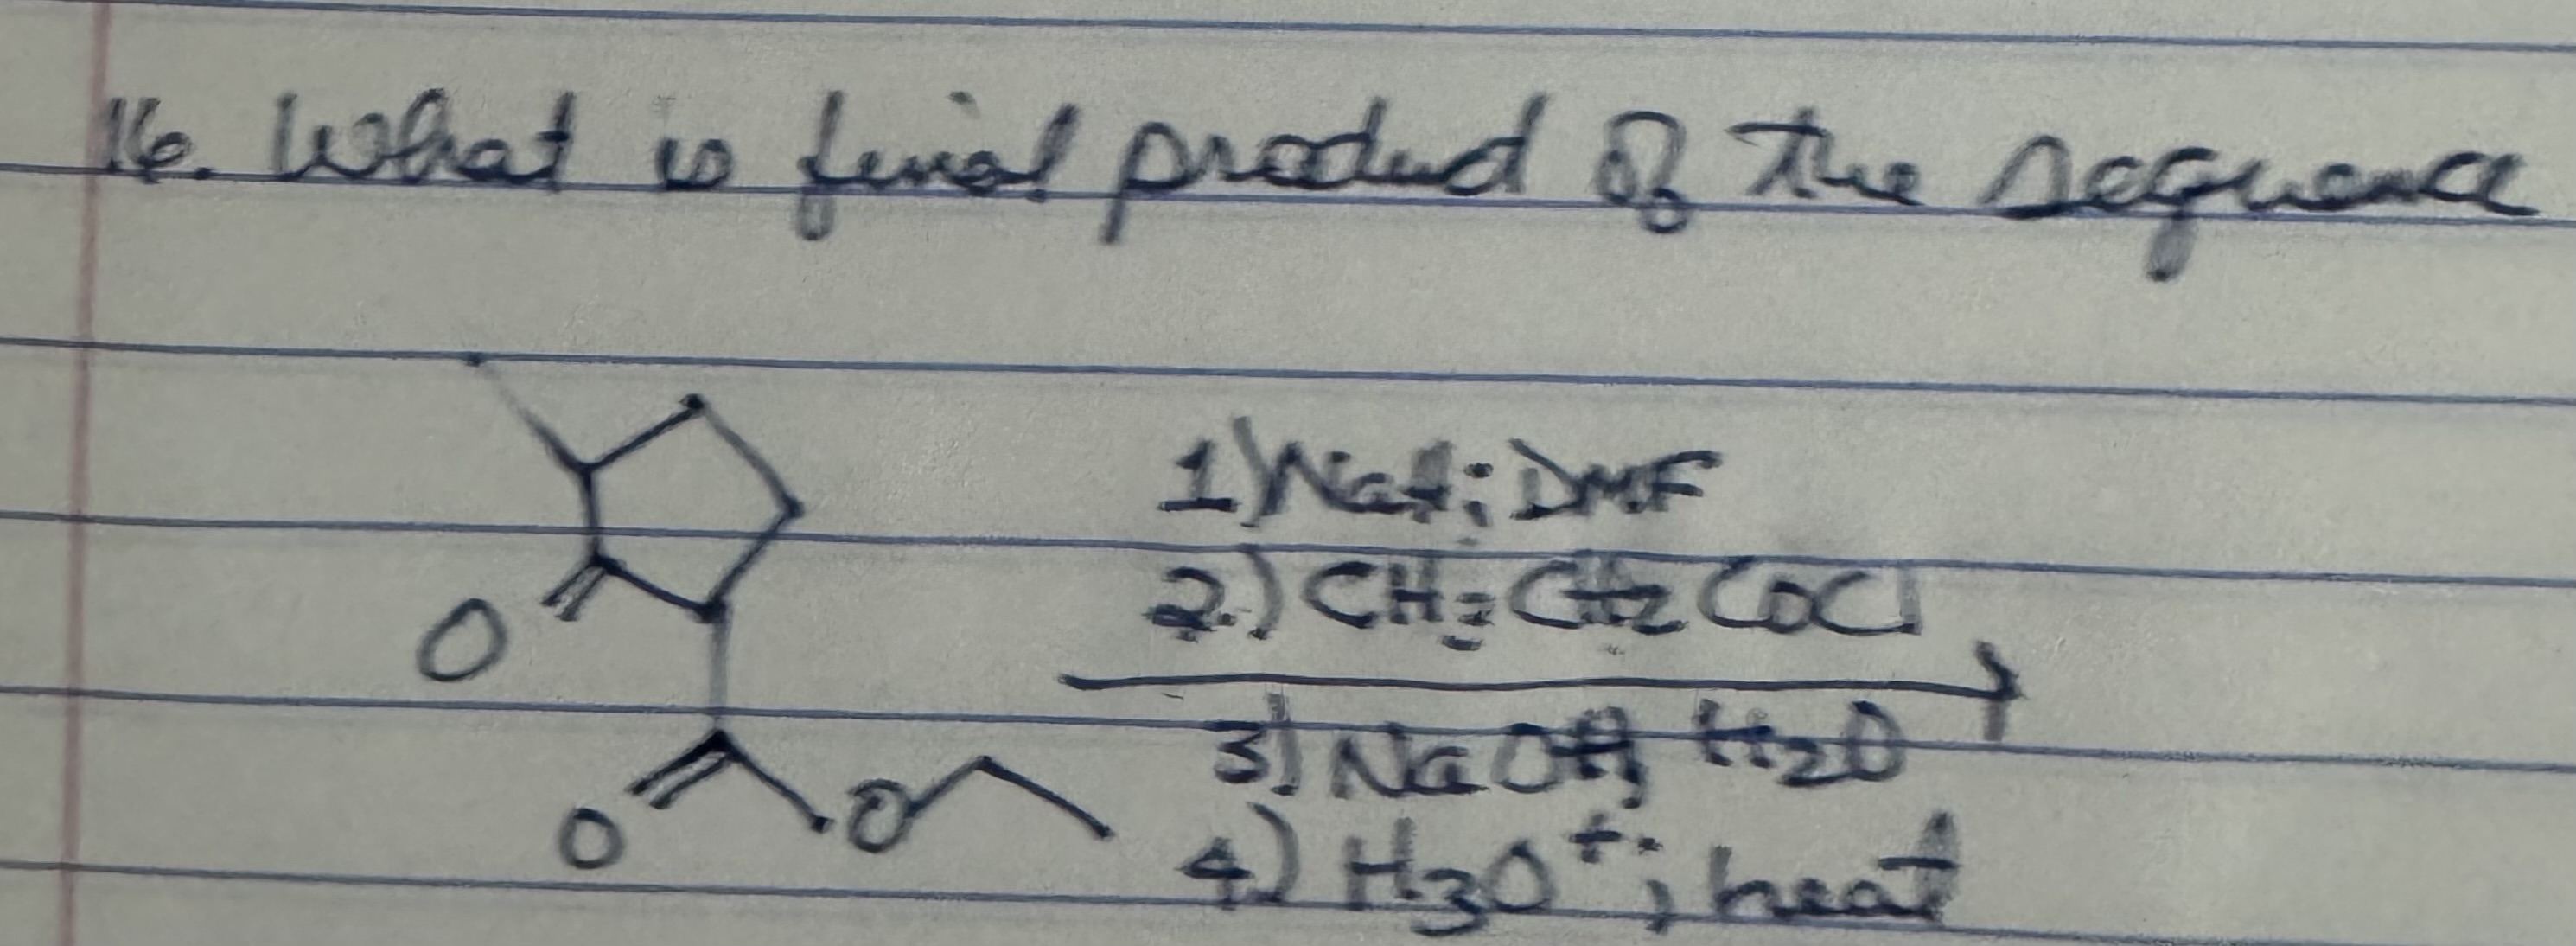 16. What is final product of the sequence
1) NaH; DMF
2.) CH3CH2COCl
O
3) NaOH, H2O
O O
4.) H3O+; heat